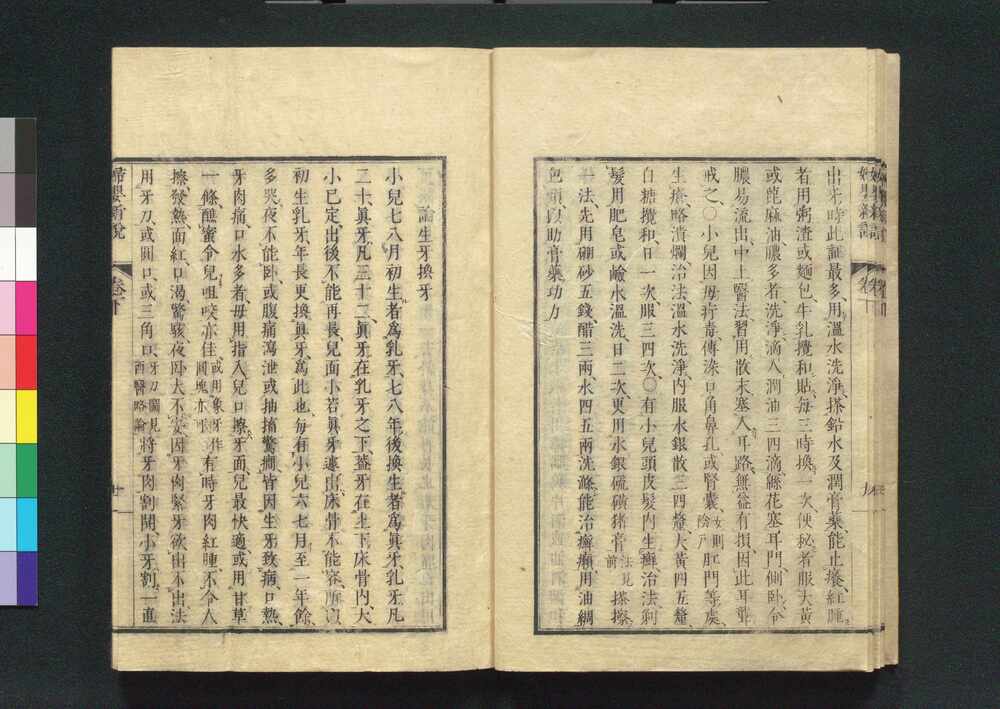 婦嬰新說 卷下
出牙時此証最多、用溫水洗淨、搽鉛水及潤膏藥、能止癢、紅腫
者用粥渣或麵包牛乳攪和貼、每三時換一次、便秘者服大黃
或蓖麻油、膿多者洗淨、滴入潤油三四滴、綿花塞耳門、側臥令
膿易流出、中土醫法習用散末塞入耳路、無益有損、因此耳聾
戒之、○小兒因母疔毒傳染、口角鼻孔或腎囊、女則陰戶肛門等處、
生瘡、略潰爛、治法、溫水洗淨、內服水銀散三四釐、大黃四五釐、
白糖攪和、日一次、服三四次、○有小兒頭皮髮內生癬、治法、剃
髮用肥皂或鹼水溫洗、日二次、更用水銀硫磺猪膏法見前搽擦、
一法、先用硼砂五錢、醋三兩、水四五兩、洗滌、能治癬癩、用油綢
包頭、以助膏藥功力、
論生牙換牙
小兒七八月初生者爲乳牙、七八年後換生者爲眞牙、乳牙凡
二十、眞牙凡三十二、眞牙在乳牙之下、蓋牙在上下床骨內、大
小已定、出後不能再長、兒面小、若眞牙遽出、床骨不能容、所以
初生乳牙、年長更換眞牙、爲此也、每有小兒六七月至一年餘、
多哭、夜不能臥、或腹痛瀉泄、或抽搐驚癇、皆因生牙致病、口熱、
牙肉痛、口水多者、母用指入兒口擦牙面、兒最快適、或用甘草
一條、醮蜜令兒咀咬亦佳、或用象牙作圓塊亦可有時牙肉紅腫、不令人
擦、發熱面紅、口渴驚駭、夜臥大不安、因牙肉緊、牙欲出不出、法
用牙刀、或圓口、或三角口、牙刀圖見西醫略論將牙肉割開、小牙割一直
婦嬰新說 卷下